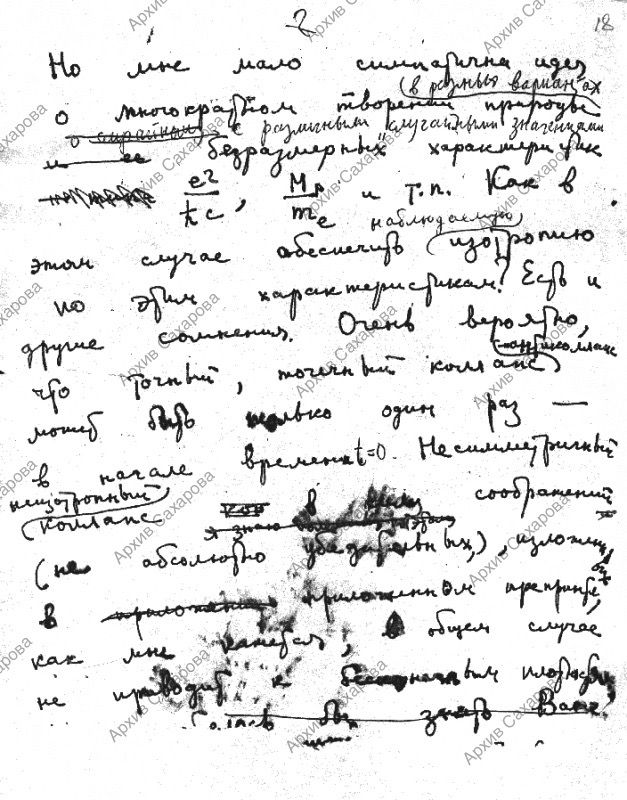 2
18
Но мне мало симпатична идея
(в разных вариантах
о многократном творении природы
с различными случайными значениями
безразмерных характеристик
e²/ħc, Mp/me и т.п. Как в
наблюдаемую
этом случае обеспечить изотропию
по этим характеристикам? Есть и
другие сомнения. Очень вероятно,
что точный, точечный коллапс
антиколлапс
может быть только один раз —
в начале времени t=0. Несимметричный
неизотропный
коллапс в силу соображений
я знаю
(не абсолютно убедительных), изложенных
в приложенном препринте,
как мне кажется, в общем случае
не приводит к бесконечным плотностям
бы знать Ваше